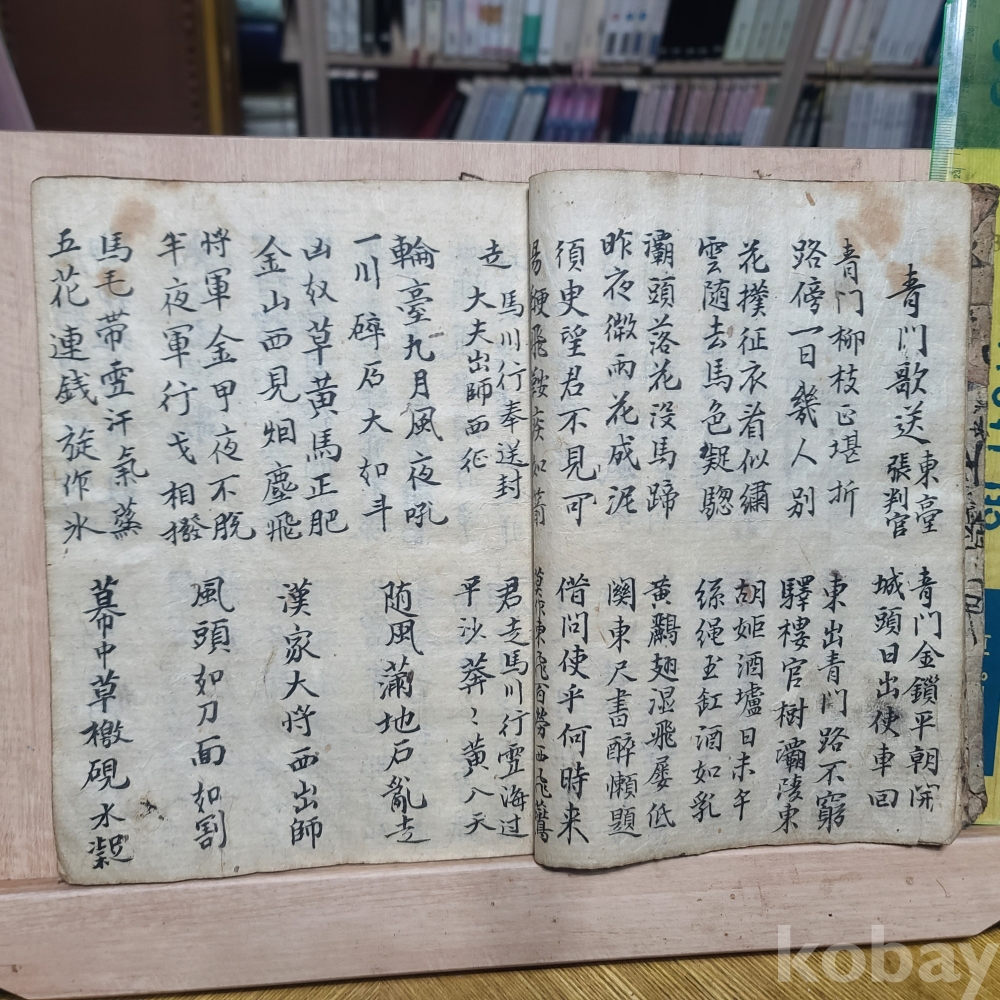 青門歌送
東臺
張判官
青門金鎖平朝開
城頭日出使車回
青门柳枝正堪折
路傍一日幾人別
東出青门路不窮
驛樓官樹灞陵東
花撲征衣看似繡
雲随去馬色疑驄
胡姬酒壚日未午
絲繩玉缸酒如乳
灞頭落花没馬蹄
昨夜微雨花成泥
黄鸝翅湿飛屡低
関東尺書醉懶題
須臾望君不見可
揚鞭飛鞚疾如箭
借问使乎何時来
莫作東飛百劳西飛鷰
走馬川行奉送封
大夫出師西征
君走馬川行雪海过
平沙莽〻黄入天
輪臺九月風夜吼
一川碎石大如斗
随風满地石亂走
凶奴草黄馬正肥
金山西見烟塵飛
漢家大将西出師
将軍金甲夜不脱
半夜軍行戈相撥
風頭如刀面如割
馬毛带雪汗氣蒸
五花連銭旋作氷
幕中草檄硯水凝
kobay